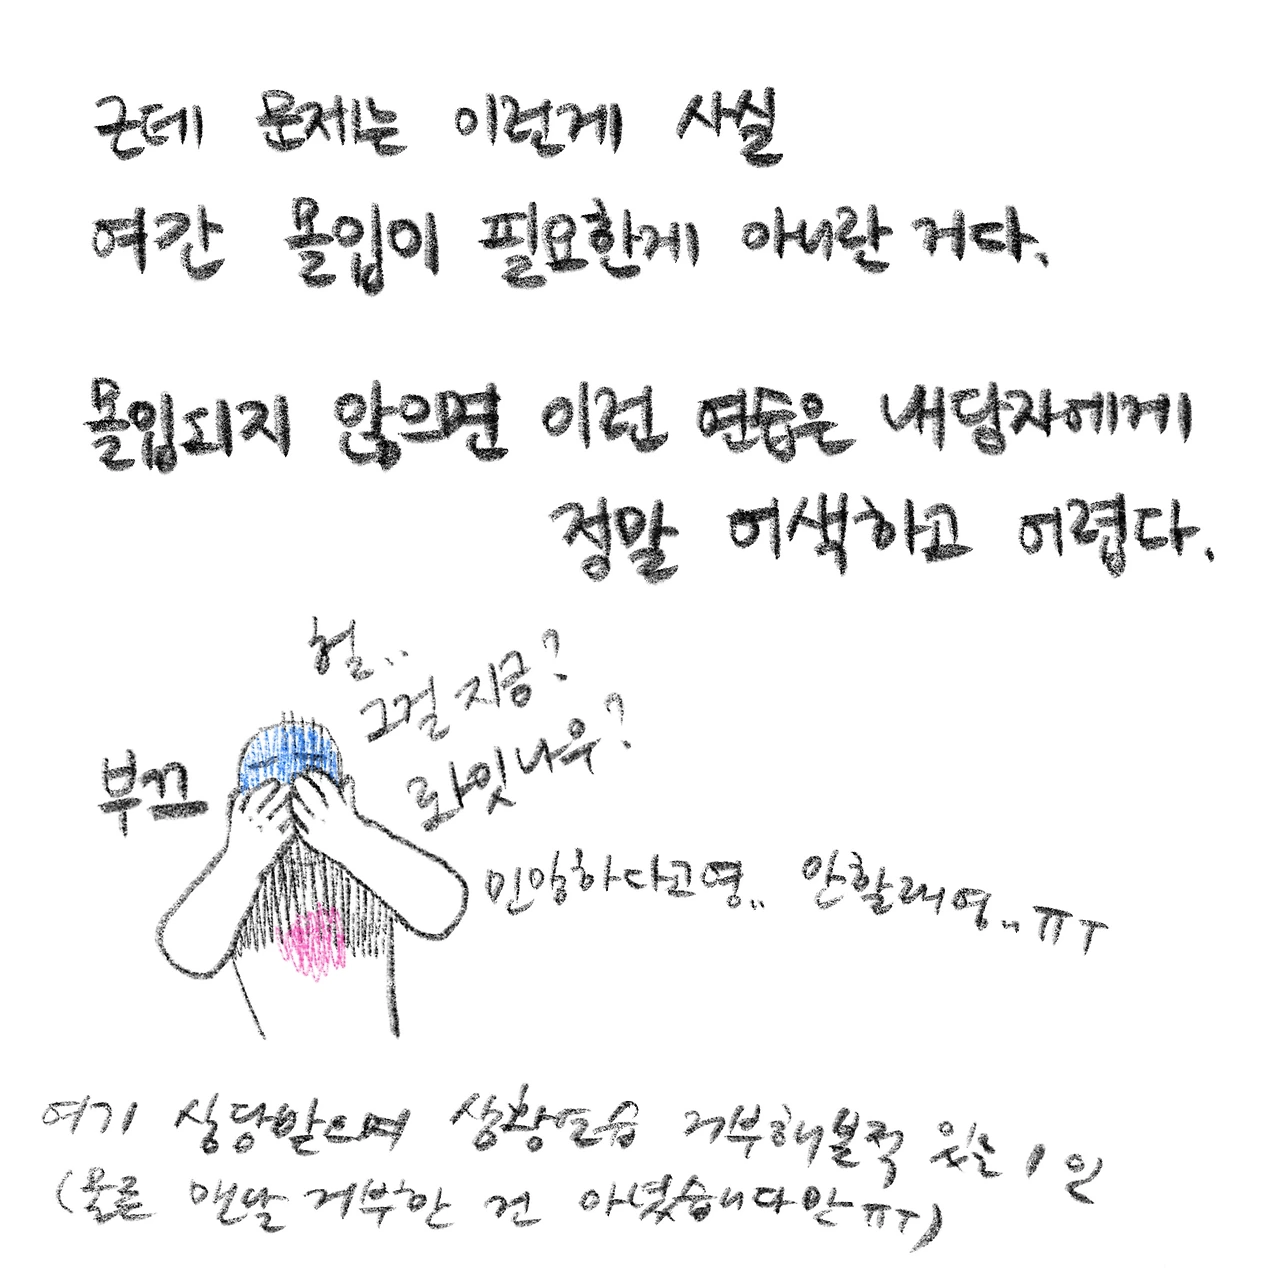 근데 문제는 이런게 사실
여간 몰입이 필요한게 아니란 거다.
몰입되지 않으면 이런 연습은 내담자에게
정말 어색하고 어렵다.
헐..
그걸 지금?
롸잇나우?
부끄
민망하다고영.. 안할래영..ㅠㅜ
여기 상담받으며 상황연습 거부해본적 있는 1인
(물론 맨날 거부한 건 아녔습니다만ㅠㅜ)